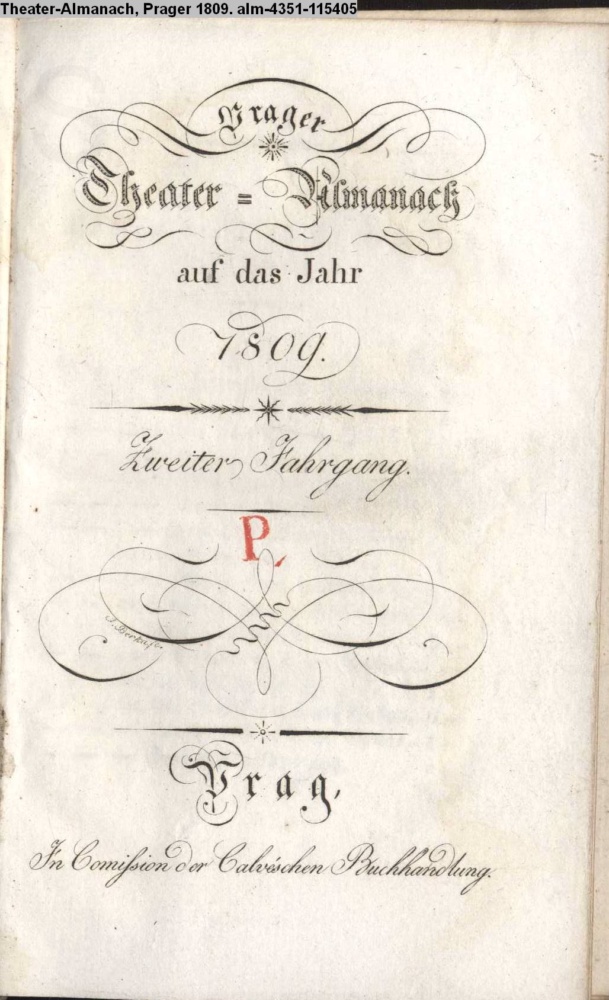 Theater-Almanach, Prager 1809. alm-4351-115405
Prager
Theater = Almanach
auf das Jahr
1809.
Zweiter Jahrgang.
P.
J. Berka sc.
Prag,
In Comißion der Calvéschen Buchhandlung.